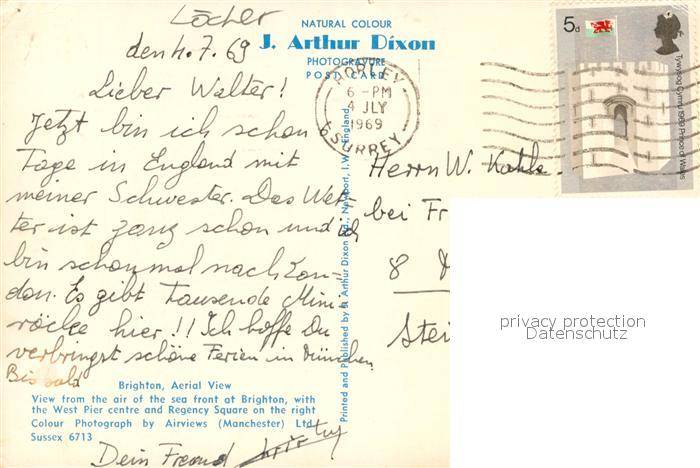 Löcher
den 4.7.69
NATURAL COLOUR
J. Arthur Dixon
PHOTOGRAVURE
POST CARD
HORLEY
6 - PM
4 JLY
1969
SURREY
5d
Tywysog Cymru 1969 Prince of Wales
Lieber Walter!
Jetzt bin ich schon 6
Tage in England mit
meiner Schwester. Das Wet-
ter ist ganz schön und ich
bin schon mal nach Lon-
don. Es gibt Tausende Mini-
röcke hier!! Ich hoffe Du
verbringst schöne Ferien in München
Bis bald
Dein Freund
Herrn W.
bei Fr
8
Stei
Printed and Published by J. Arthur Dixon Ltd., Newport, I.W., England.
privacy protection
Datenschutz
Brighton, Aerial View
View from the air of the sea front at Brighton, with
the West Pier centre and Regency Square on the right
Colour Photograph by Airviews (Manchester) Ltd.
Sussex 6713